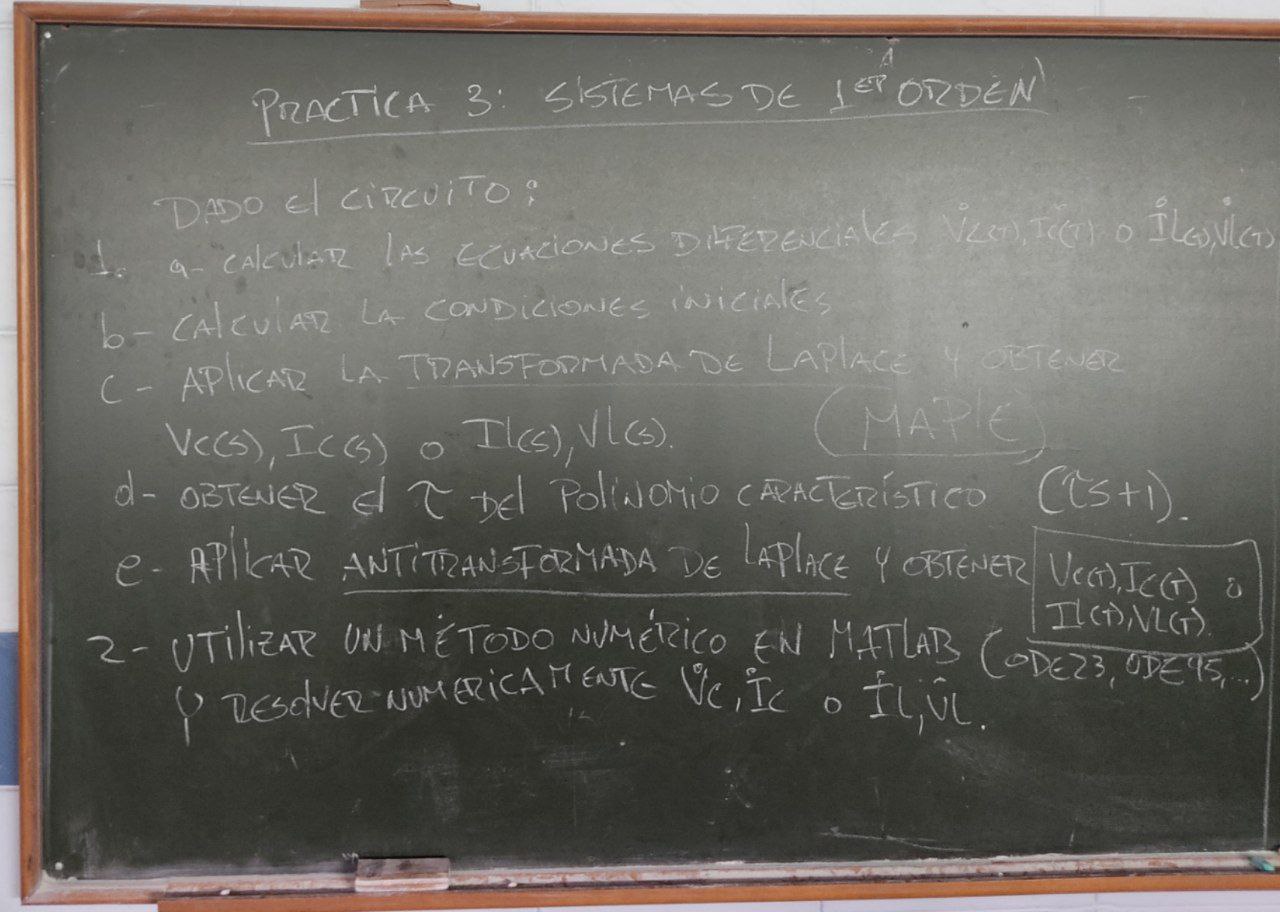 PRACTICA 3: SISTEMAS DE 1er ORDEN
DADO el circuito:
1. a- CALCULAR LAS ECUACIONES DIFERENCIALES V̊c(t), I̊c(t) o I̊L(t), V̊L(t)
b- CALCULAR LA CONDICIONES INICIALES
c- APLICAR LA TRANSFORMADA DE LAPLACE Y OBTENER
Vc(s), Ic(s) o Il(s), Vl(s). (MAPLE)
d- OBTENER el τ Del POLINOMIO CARACTERÍSTICO (τs+1).
e- APLICAR ANTITRANSFORMADA DE LAPLACE Y OBTENER Vc(t), Ic(t) o
IL(t), VL(t).
2- UTILIZAR UN MÉTODO NUMÉRICO EN MATLAB (ODE23, ODE45,...)
Y RESOLVER NUMERICAMENTE V̊c, I̊c o I̊l, V̊l.